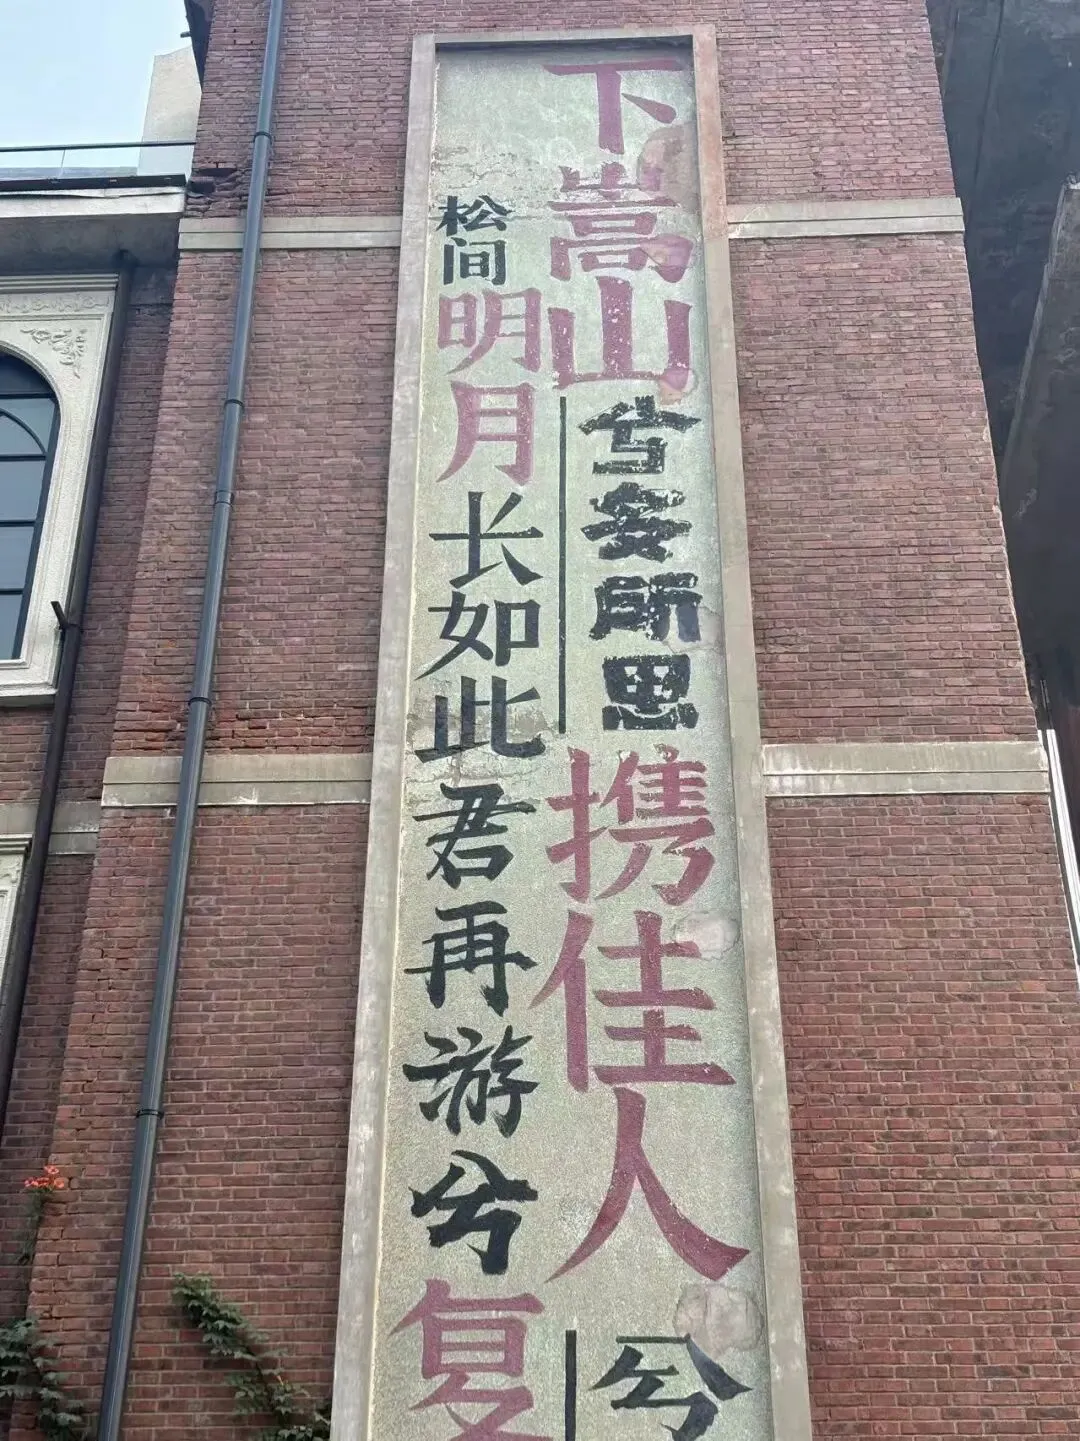 下嵩山兮多所思携佳人兮
松间明月长如此君再游兮复